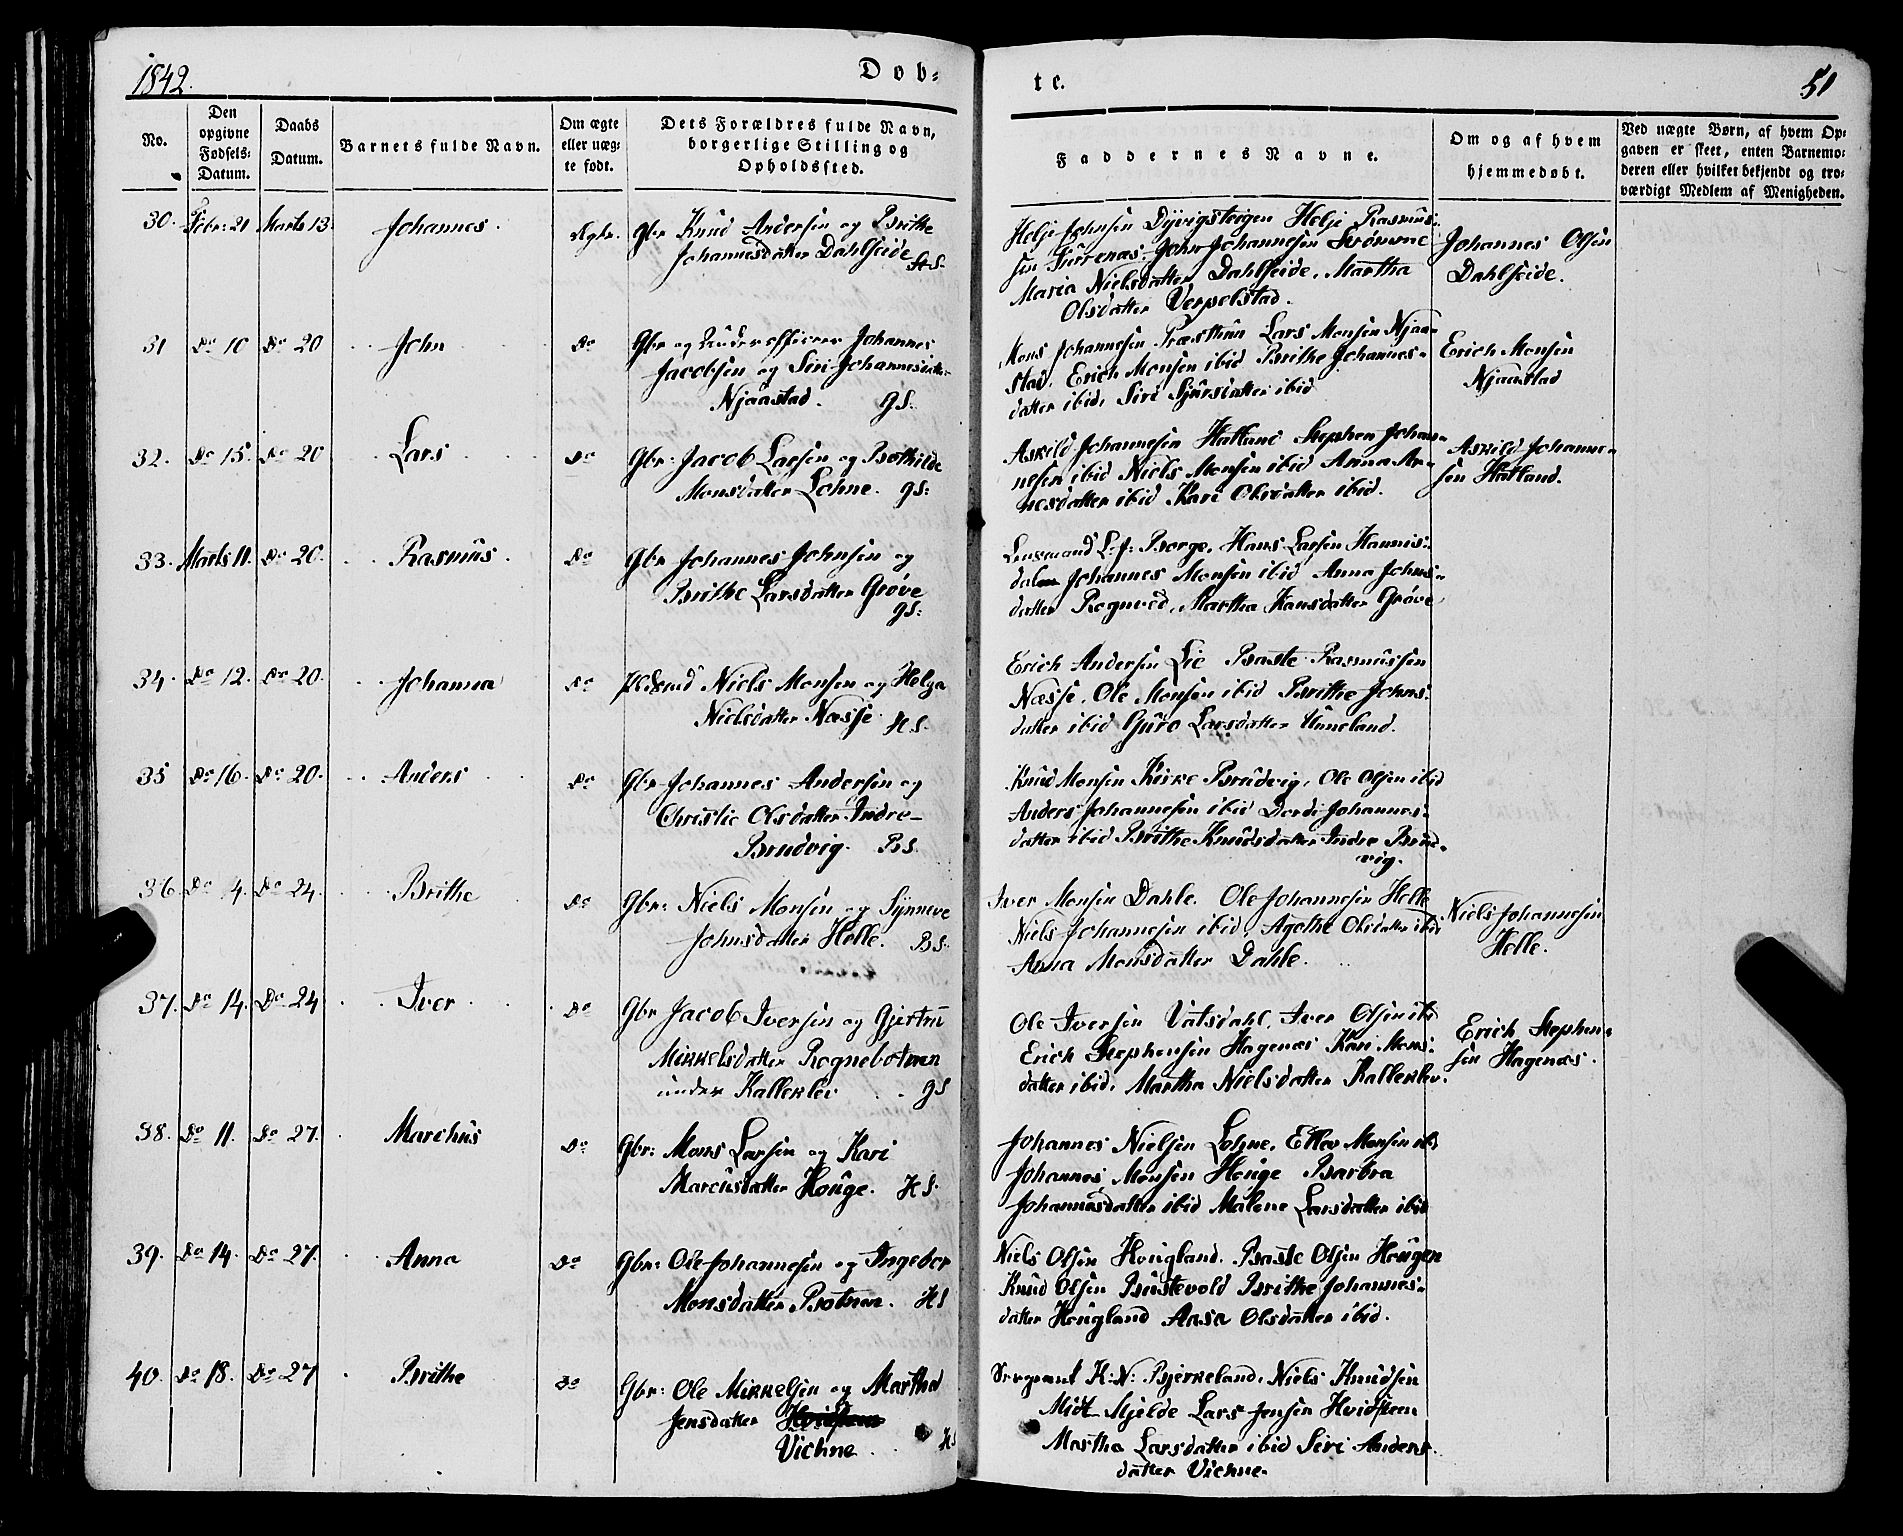 1842.
Døb-
te.
51
No.
Den opgivne Fødsels-Datum.
Daabs Datum.
Barnets fulde Navn.
Om ægte eller uæg-te født.
Dets Forældres fulde Navn, borgerlige Stilling og Opholdssted.
Faddernes Navne.
Om og af hvem hjemmedøbt.
Ved uægte Børn, af hvem Op-
gaven er skeet, enten Barnemo-
deren eller hvilket bekjendt og tro-
værdigt Medlem af Menigheden.
30. Febr: 21 Marts 13. Johannes.
Gbr Knud Andersen og Brithe
Johannesdatter Dahlseide
Johnsen Helje Rasmus-
Johannesen
Maria Nielsdatter Dahlseide, Martha
Olsdatter Verpelstad.
Johannes Olsen
Dahlseide.
31 Do 10 Do 20 John Do
Gbr og Underofficeer Johannes
Jacobsen og Siri Johannesdatter
Njaastad. GS.
Mons Johannesen Præsthun Lars Monsen Njaa-
stad, Erich Monsen ibid Brithe Johannes-
datter ibid, Siri Sjursdatter ibid
Erich Monsen
Njaastad
32. Do 15. Do 20 Lars Do
Gbr. Jacob Larsen og Bothilde
Monsdatter Lohne. GS:
Askild Johannesen Hatland Stephen Johan-
nesen ibid Niels Monsen ibid Anna Ar-
nesdatter ibid Kari Olsdatter ibid.
Askild Johanne-
sen Hatland.
33. Marts 11. Do 20. Rasmus. Do
Gbr Johannes Johnsen og
Brithe Larsdatter Grøve
GS:
Lensmand L: J: Borge, Hans Larsen Hannis-
dalen Johannes Monsen ibid Anna Johns-
datter Rognved, Martha Hansdatter Grøve
34. Do 12. Do 20. Johanna Do
Niels Monsen og Helga
Nielsdatter Næsse HS.
Erich Andersen Lie Baste Rasmussen
Næsse, Ole Monsen ibid Brithe Johns-
datter ibid Guro Larsdatter Unneland.
35 Do 16. Do 20. Anders Do
Gbr Johannes Andersen og
Christie Olsdatter Indre-
Brudvig. BS.
Knud Monsen Kirke Brudvig, Ole Olsen ibid
Anders Johannesen ibid Dordi Johannes-
datter ibid Brithe Knudsdatter Indre Brud-
vig.
36. Do 4. Do 24. Brithe Do
Gbr: Niels Monsen og Synneve
Johnsdatter Helle. BS.
Iver Monsen Dahle. Ole Johannesen Helle
Niels Johannesen ibid, Agothe Olsdatter ibid
Anna Monsdatter Dahle.
Niels Johannesen
Helle.
37. Do 14. Do 24 Iver Do
Gbr Jacob Iversen og Gjertru
Mikkelsdatter Rognebotnen
under Kallerlev GS
Ole Iversen Vatsdahl, Iver Olsen ibd
Erich Stephensen Hagenæs Kari Mons-
datter ibid, Martha Nielsdatter Kallerlev.
Erich Stephen-
sen Hagenæs.
38. Do 11. Do 27. Marchus Do
Gbr: Mons Larsen og Kari
Marcusdatter Houge. HS.
Johannes Nielsen Lohne, Ellev Monsen ibd
Johannes Monsen Houge Barbra
Johannesdatter ibid Malene Larsdatter ibid
39. Do 14. Do 27. Anna Do
Gbr: Ole Johannesen og Ingebor
Monsdatter Botnen. HS
Niels Olsen Hougland. Baste Olsen Hougen
Knud Olsen Bustevold Brithe Johannes-
datter Hougland Aasa Olsdatter ibid.
40. Do 18. Do 27 Brithe Do
Gbr: Ole Mikkelsen og Martha
Jensdatter Hvidsteen
Vichne HS
Sergeant K: N: Bjerkeland, Niels Knudsen
Midt Mjelde Lars Jensen Hvidsteen
Martha Larsdatter ibid Siri Anders-
datter Vichne.